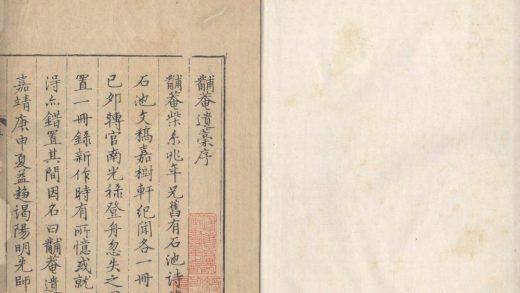 黼菴遺藁序
黼菴柴系兆年兄舊有石池詩
石池文稿嘉樹軒紀聞各一冊
已夘轉官南光祿登舟忽失之
置一冊錄新作時有所憶或就
淂亦錯置其間因名曰黼菴遺
嘉靖庚申夏益趨謁陽明先師